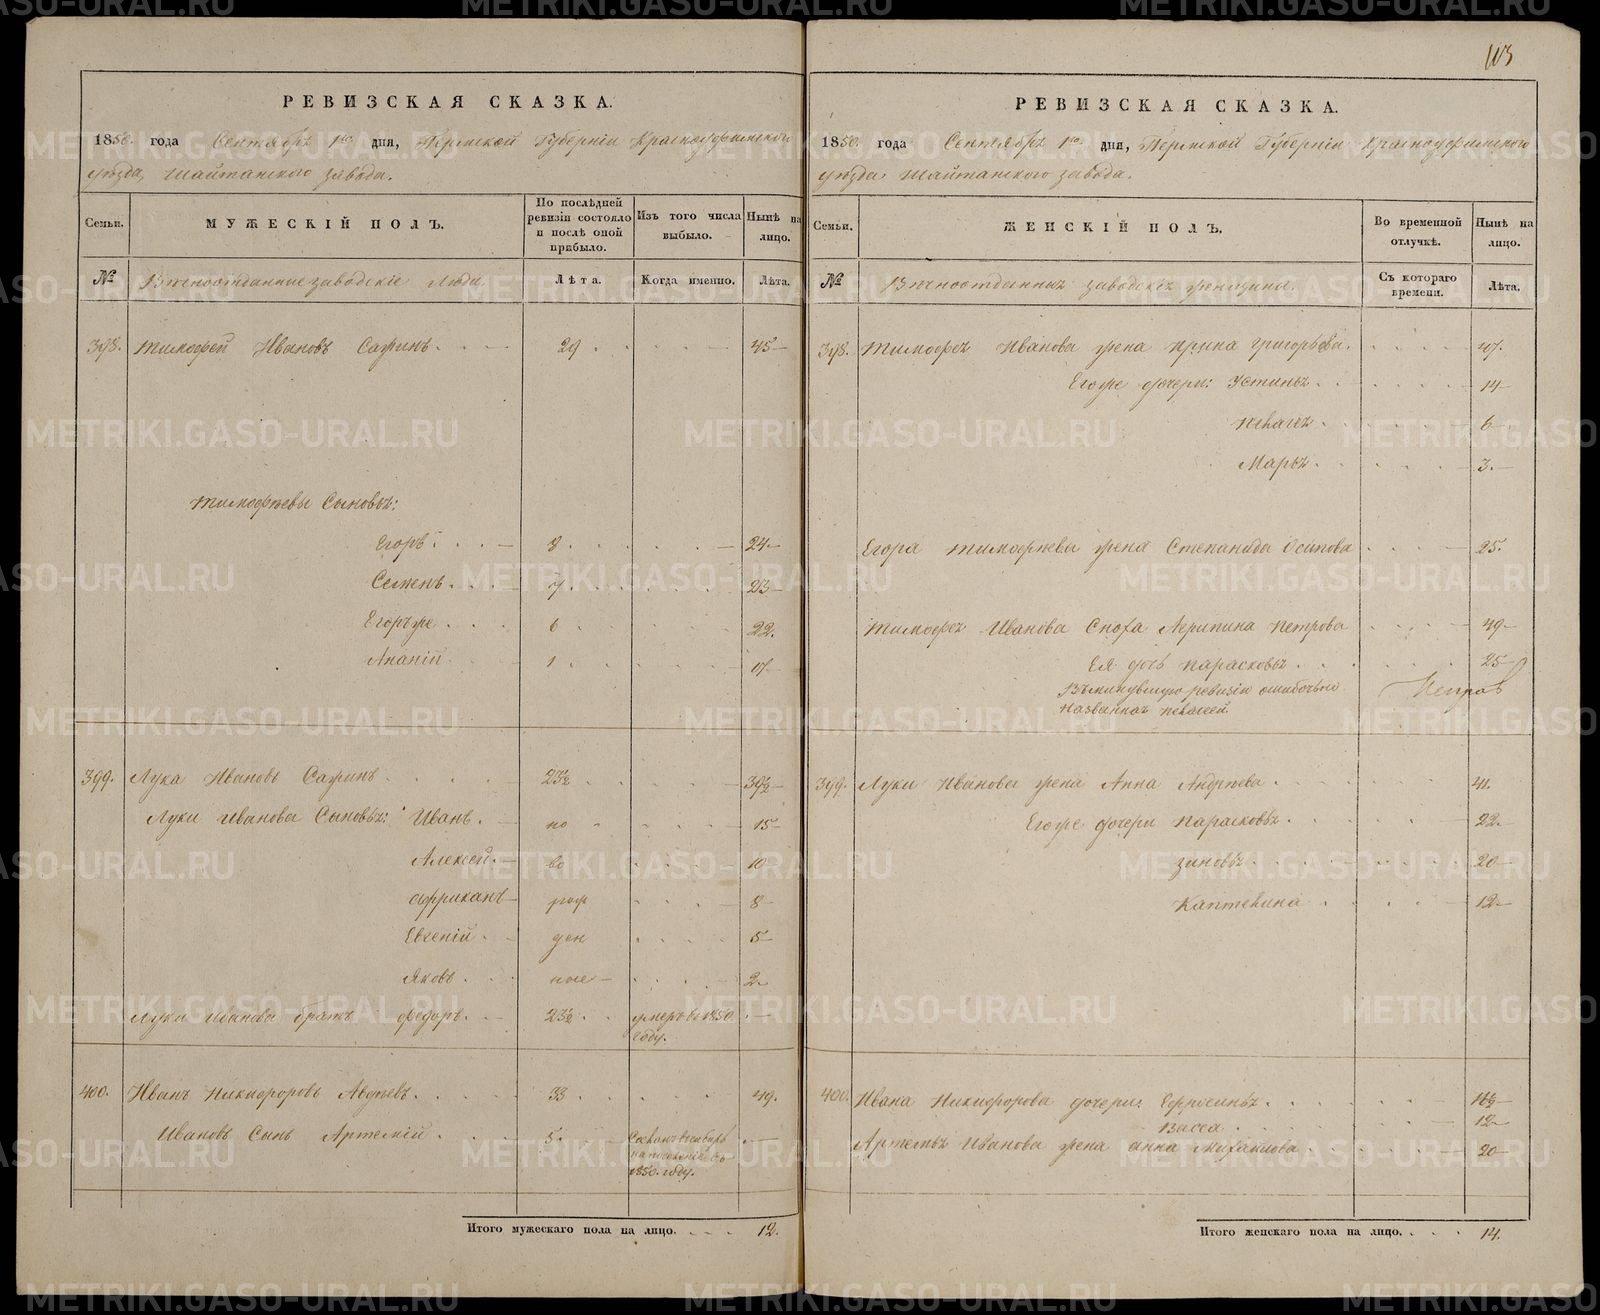 113
РЕВИЗСКАЯ СКАЗКА.
1850. года Сентября 1го. дня, Пермской Губерніи Красноуфимского
уѣзда, Шайтанского завода.
Семьи.
МУЖЕСКІЙ ПОЛЪ.
По послѣдней ревизіи состояло и послѣ оной прибыло.
Изъ того числа выбыло.
Нынѣ на лицо.
№
заводскіе люди.
Лѣта.
Когда именно.
Лѣта.
398. Тимофей Ивановъ Сафинъ. 29 45
Тимофѣевы Сыновья:
Егоръ. 8. 24
Семенъ. 7. 23
Егоръ же 6 22.
Ананій 1. 17
399. Лука Ивановъ Сафинъ 23½ 39½
Луки Иванова Сыновья: Иванъ. но 15
Алексей. во 10
Африканъ рож 8
Евгеній. ден 5
Яковъ. ные 2.
Луки Иванова братъ Федоръ. 23½ умеръ въ 1850.
году.
400. Иванъ Никифоровъ Авдѣевъ. 33 49.
Ивановъ Сынъ Артемій 5.
на поселеніе въ
1850. году.
Итого мужескаго пола на лицо. 12.
РЕВИЗСКАЯ СКАЗКА.
1850. года Сентября 1го. дня, Пермской Губерніи Красноуфимского
уѣзда Шайтанского завода.
Семьи.
ЖЕНСКІЙ ПОЛЪ.
Во временной отлучкѣ.
Нынѣ на лицо.
№
заводскія женщины.
Съ котораго времени.
Лѣта.
398. Тимофея Иванова жена Ирина Григорьева. 47.
Его же дочери: Устинья 14
Пелагея 6
Марья 3.
Егора Тимофѣева жена Степанида Осипова 25.
Тимофея Иванова Сноха Агрипина Петрова 49
Ея дочь Парасковья 25
Въ минувшую ревизію ошибочно
названная Пелагеей.
399. Луки Иванова жена Анна Андрѣева 41.
Его же дочери Парасковья 22.
Зиновья 20
Каптелина 12
400. Ивана Никифорова дочери: Ефросинья
Васса 12
Артемья Иванова жена Анна Михайлова 20
Итого женскаго пола на лицо. 14.
METRIKI.GASO-URAL.RU